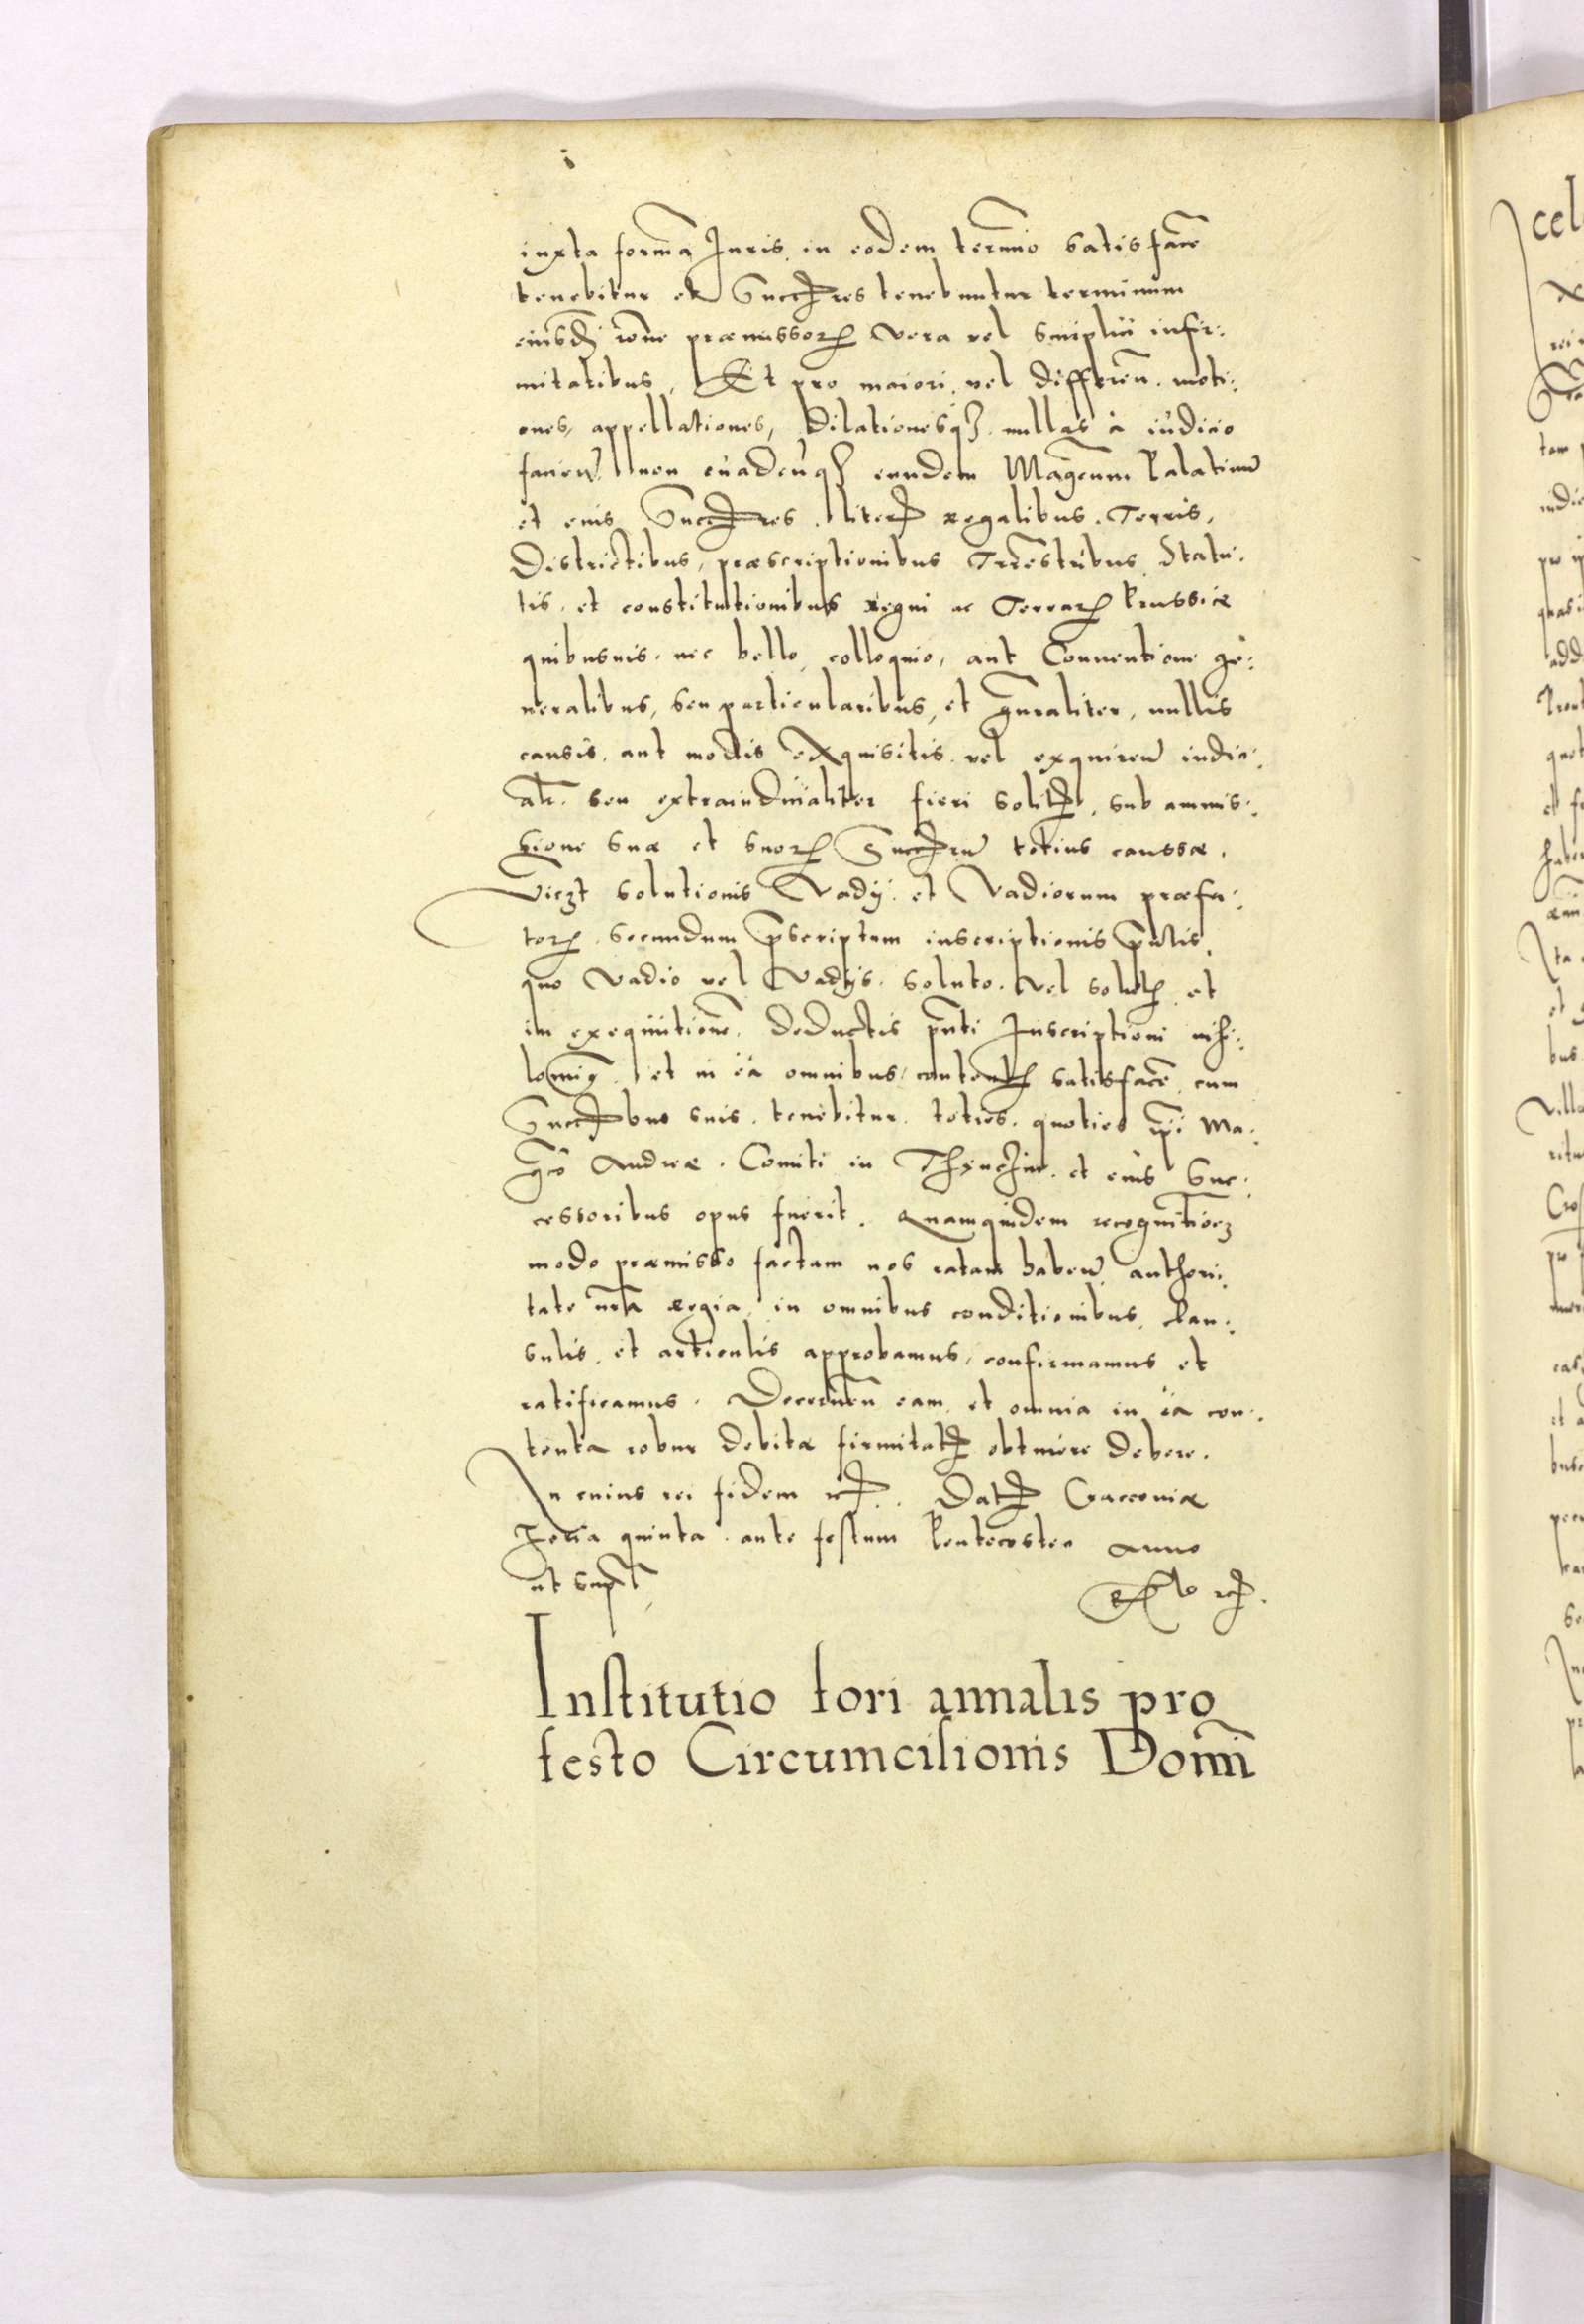 iuxta formã Iuris in eodem termĩo satisfacẽ
tenebitur et Succres tenebuntur terminum
eiusdẽ rone præmissorꝝ vera vel simplici infir:
mitatibus, Et pro maiori vel differen. moti:
ones, appellationes, Dilationesqꝫ nullas à iudicio
facien. non euadenqꝫ eundem Magcum Palatinũ
et eius Succres. literis regalibus. Terris,
Districtibus, præscriptionibus Trrestribus Statu:
tis. et constitutionibus regni ac Terrarꝝ Prussiæ
quibusuis. nec bello colloquio, aut Conuentione ge:
neralibus, seu particularibus, et gñraliter, nullis
causis. aut modis exquisitis vel exquiren iudici:
alr. seu extraiudicialiter fieri solitis, sub amis:
sione suæ et suorꝝ Succrũ totius caussæ.
Viczt solutionis Vadij. et Vadiorum præfa:
torꝝ. secundum p̃scriptum inscriptionis p̃ntis.
quo vadio vel Vadijs. soluto. vel solutꝭ et
in exequutionẽ. deductis p̃nti Inscriptioni nihi:
lominꝰ et in ea omnibus contentꝭ satisfacẽ cum
Succribus suis. tenebitur. toties. quoties ip̃i Ma:
gco Andreæ. Comiti in Thenczin. et eius Suc:
cessoribus opus fuerit. Quamquidem recognitioẽ
modo præmisso factam nos ratam haben. authori:
tate nr̃a regia in omnibus conditionibus, clau:
sulis. et articulis approbamus, confirmamus et
ratificamus. Decernen eam et omnia in ea con:
tenta robur debitæ firmitatis obtinere debere.
In cuius rei fidem etc. Datꝭ Cracouiæ
Feria quinta. ante festum Pentecosten anno
ut supr̃
Institutio fori annalis pro
festo Circumcisionis Domĩ